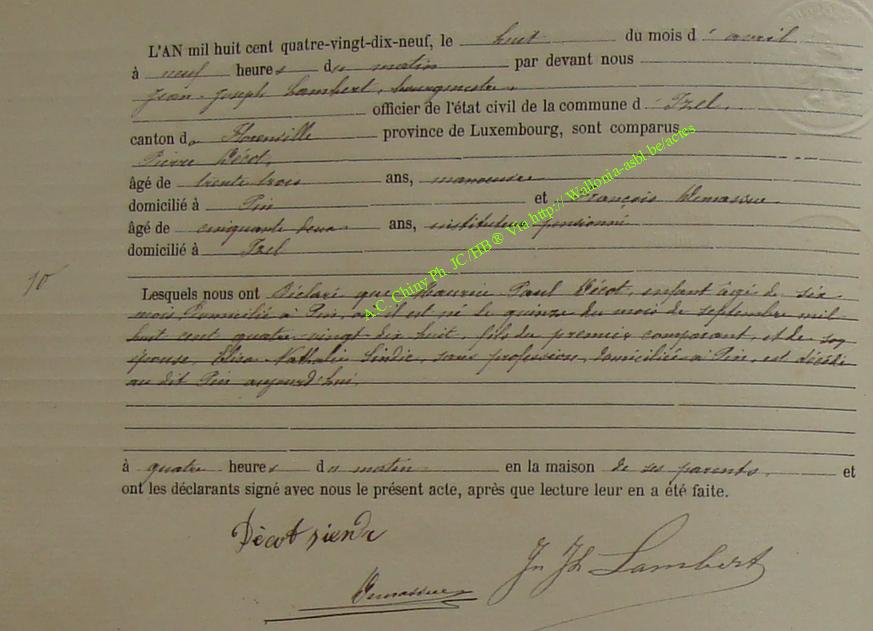 L'AN mil huit cent quatre-vingt-dix-neuf, le huit du mois d'avril
à neuf heures du matin par devant nous
Jean-Joseph Lambert, bourgmestre,
officier de l'état civil de la commune d'Izel,
canton de Florenville province de Luxembourg, sont comparus
Pierre Décot,
âgé de trente trois ans, manoeuvre
domicilié à Pin et François
âgé de cinquante deux ans, instituteur pensionné
domicilié à Izel
10
Lesquels nous ont Déclaré que Maurice Paul Décot, enfant âgé de six
mois, Domicilié à Pin, où il est né le quinze du mois de septembre mil-
huit cent quatre-vingt dix huit, fils du premier comparant, et de son
épouse, Nathalie sans profession, domiciliée à Pin, est décédé
au dit Pin aujourd'hui
à quatre heures du matin en la maison de ses parents, et
ont les déclarants signé avec nous le présent acte, après que lecture leur en a été faite.
Dècot
Jn Jh Lambert
A.C. Chiny Ph. JC/HB® Via http://Wallonia-asbl.be/actes